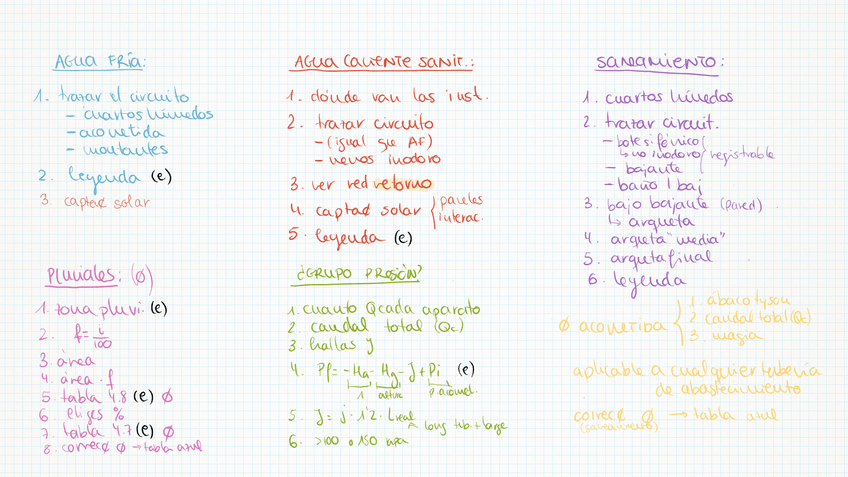 AGUA FRÍA:
1. trazar el circuito
- cuartos húmedos
- acometida
- montantes
2. leyenda (e)
3. captac solar
AGUA CALIENTE SANIT.:
1. dónde van las inst.
2. trazar circuito
- (igual que AF)
- menos inodoro
3. ver red retorno
4. captac solar { paneles
interac.
5. leyenda (e)
SANEAMIENTO:
1. cuartos húmedos
2. trazar circuit.
- bote sifónico
↳ no inodoro } registrable
- bajante
- baño 1 baj
3. bajo bajante (pared)
↳ arqueta
4. arqueta "media"
5. arqueta final
6. leyenda
PLUVIALES: (Ø)
1. zona pluvi. (e)
2. f = i/100
3. área
4. área · f
5. tabla 4.8 (e) Ø
6. eliges %
7. tabla 4.7 (e) Ø
8. correcc Ø → tabla azul
¿GRUPO PRESIÓN?
1. cuanto Q cada aparato
2. caudal total (Qc)
3. hallas J
4. Pf = - Ha - Hg - J + Pi (e)
1 altura p. acomet.
5. J = j · 1'2 · L real
^ long tub. + larga
6. >100 o 150 kpa
Ø acometida { 1. ábaco tyson
2. caudal total (Qc)
3. magia
aplicable a cualquier tubería
de abastecimiento
correcc Ø → tabla azul
(saneamiento)